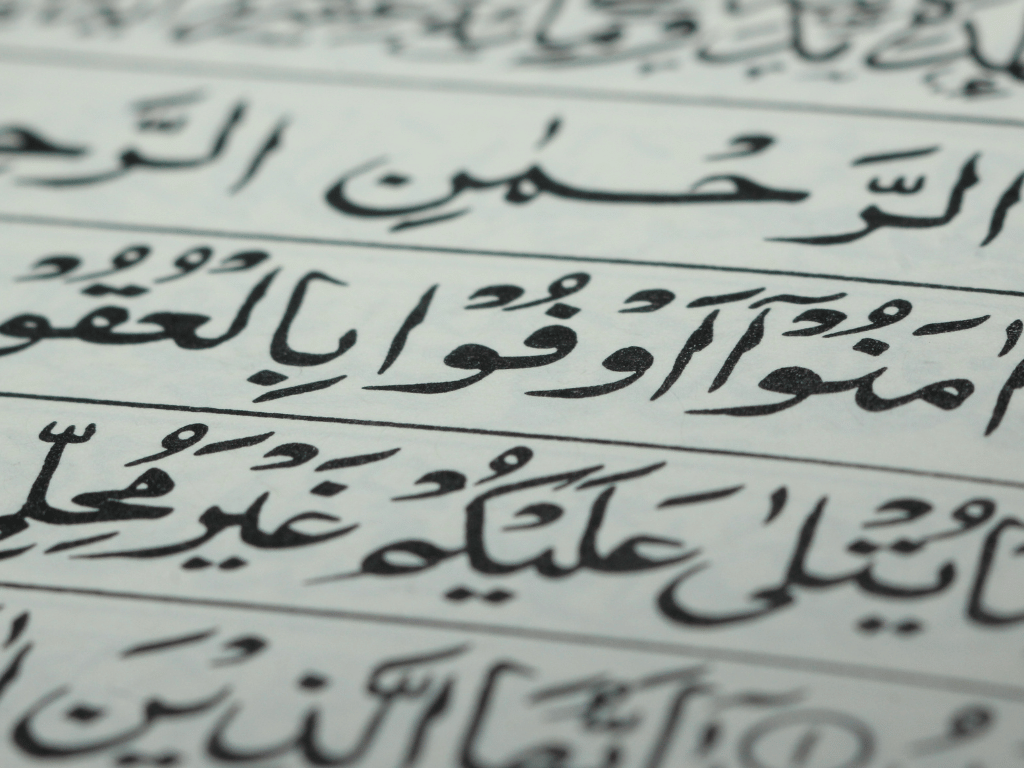 الرَّحْمٰنِ
اٰمَنُوْۤا اَوْفُوْا بِالْعُقُوْ
مَا يُتْلٰى عَلَيْكُمْ غَيْرَ مُحِلِّ
يٰۤاَيُّهَا الَّذِيْنَ